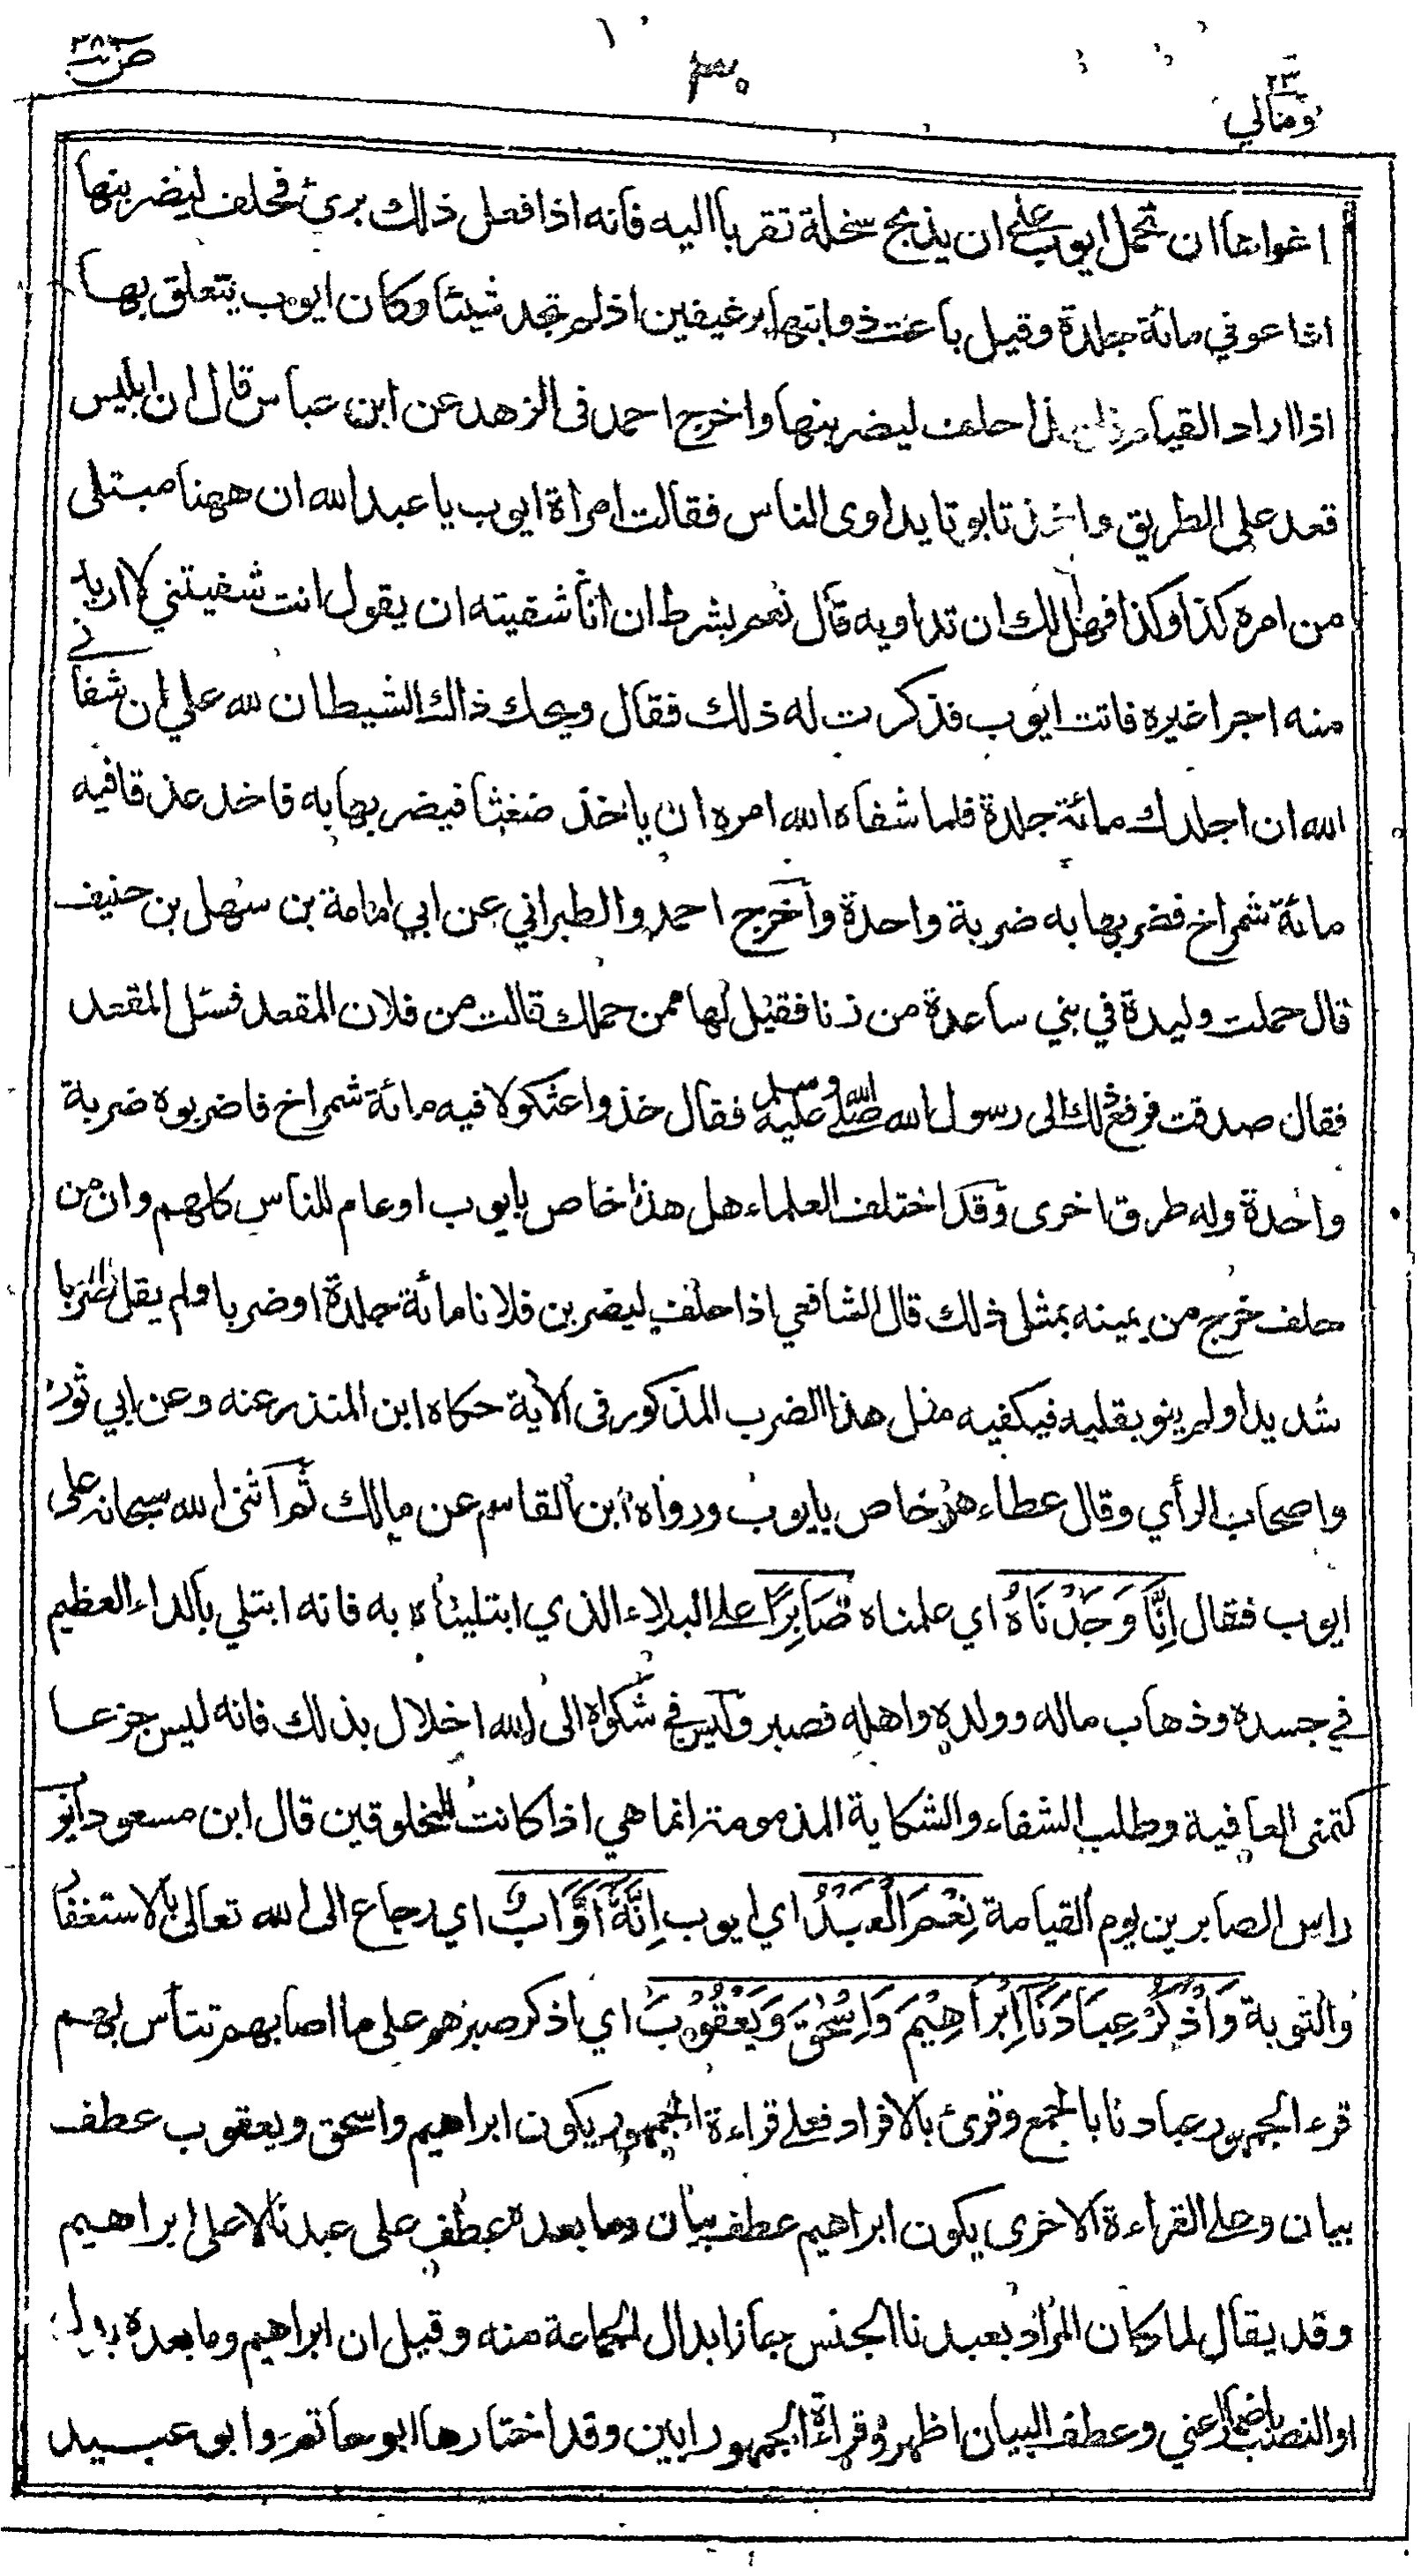 ص ٣٨
٣٠
ومالي ٢٣
اغواها ان تحمل ايوب على ان يذبح سخلة تقربا اليه فانه اذا فعل ذلك برئ فحلف ليضربنها
ان عوفي مائة جلدة وقيل باعت ذوابتها برغيفين اذ لم تجد شيئا وكان ايوب يتعلق بها
اذا اراد القيام حلف ليضربنها واخرج احمد فى الزهد عن ابن عباس قال ان ابليس
قعد على الطريق واخذ تابوتا يداوى الناس فقالت امراة ايوب يا عبد الله ان ههنا مبتلى
من امره كذا وكذا فهل لك ان تداويه قال نعم بشرط ان انا شفيته ان يقول انت شفيتني لا اريد
منه اجرا غيره فاتت ايوب فذكرت له ذلك فقال ويحك ذاك الشيطان لله علي ان شفاني
الله ان اجلدك مائة جلدة فلما شفاه الله امره ان ياخذ ضغثا فيضربها به فاخذ عذقا فيه
مائة شمراخ فضربها به ضربة واحدة واخرج احمد والطبراني عن ابي امامة بن سهل بن حنيف
قال حملت وليدة في بني ساعدة من زنا فقيل لها ممن حملك قالت من فلان المقعد فسئل المقعد
فقال صدقت فرفع ذلك الى رسول الله صلى الله عليه وسلم فقال خذوا عثكولا فيه مائة شمراخ فاضربوه ضربة
واحدة وله طرق اخرى وقد اختلف العلماء هل هذا خاص بايوب او عام للناس كلهم وان من
حلف خرج من يمينه بمثل ذلك قال الشافعي اذا حلف ليضربن فلانا مائة جلدة او ضربا ولم يقل ضربا
شديدا ولم ينو بقلبه فيكفيه مثل هذا الضرب المذكور فى الآية حكاه ابن المنذر عنه وعن ابي ثور
واصحاب الرأي وقال عطاء هو خاص بايوب ورواه ابن القاسم عن مالك ثم اثنى الله سبحانه على
ايوب فقال إِنَّا وَجَدْنَاهُ اي علمناه صَابِرًا على البلاء الذي ابتليناه به فانه ابتلي بالداء العظيم
في جسده وذهاب ماله وولده واهله فصبر وليس في شكواه الى الله اخلال بذلك فانه ليس جزعا
كتمنى العافية وطلب الشفاء والشكاية المذمومة انما هي اذا كانت للمخلوقين قال ابن مسعود ايوب
راس الصابرين يوم القيامة نِعْمَ الْعَبْدُ اي ايوب إِنَّهُ أَوَّابٌ اي رجاع الى الله تعالى بالاستغفار
والتوبة وَاذْكُرْ عِبَادَنَا إِبْرَاهِيْمَ وَإِسْحٰقَ وَيَعْقُوْبَ اي اذكر صبرهم على ما اصابهم تتأس بهم
قرء الجمهور عبادنا بالجمع وقرئ بالافراد فعلى قراءة الجمهور يكون ابراهيم واسحق ويعقوب عطف
بيان وعلى القراءة الاخرى يكون ابراهيم عطف بيان وما بعده عطف على عبدنا لا على ابراهيم
وقد يقال لما كان المراد بعبدنا الجنس جاز ابدال الجماعة منه وقيل ان ابراهيم وما بعده بدل
او النصب باضمار اعني وعطف البيان اظهر وقراءة الجمهور ابين وقد اختارها ابو حاتم وابو عبيد